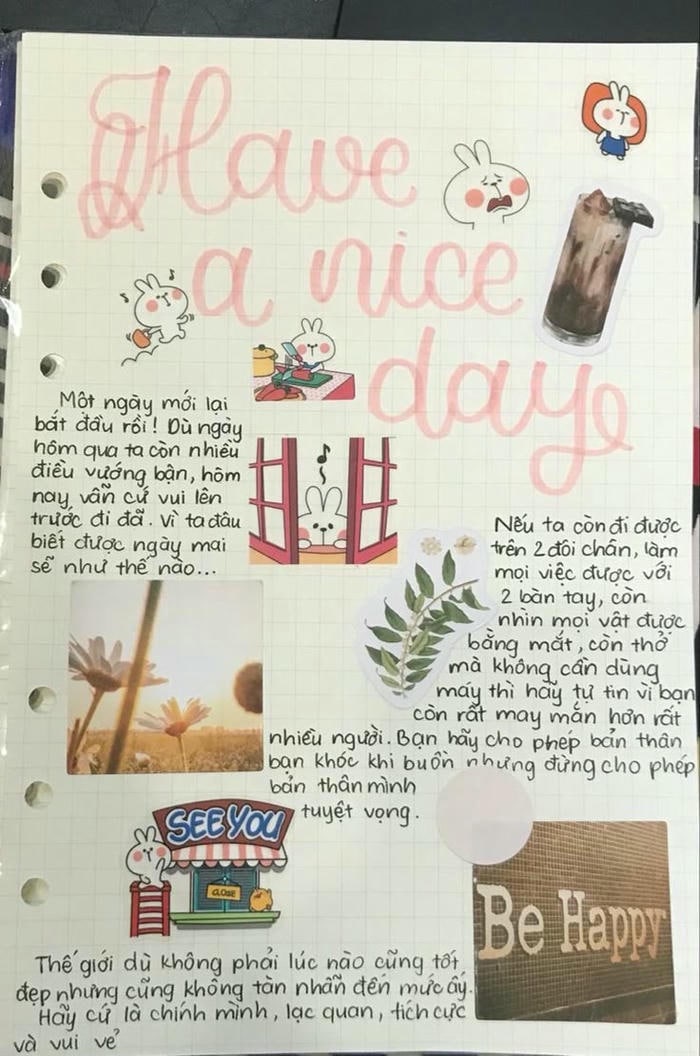 Have
a nice
day
Một ngày mới lại
bắt đầu rồi! Dù ngày
hôm qua ta còn nhiều
điều vướng bận, hôm
nay vẫn cứ vui lên
trước đi đã. Vì ta đâu
biết được ngày mai
sẽ như thế nào...
Nếu ta còn đi được
trên 2 đôi chân, làm
mọi việc được với
2 bàn tay, còn
nhìn mọi vật được
bằng mắt, còn thở
mà không cần dùng
máy thì hãy tự tin vì bạn
còn rất may mắn hơn rất
nhiều người. Bạn hãy cho phép bản thân
bạn khóc khi buồn nhưng đừng cho phép
bản thân mình
tuyệt vọng.
SEE YOU
CLOSE
Be Happy
Thế giới dù không phải lúc nào cũng tốt
đẹp nhưng cũng không tàn nhẫn đến mức ấy.
Hãy cứ là chính mình, lạc quan, tích cực
và vui vẻ